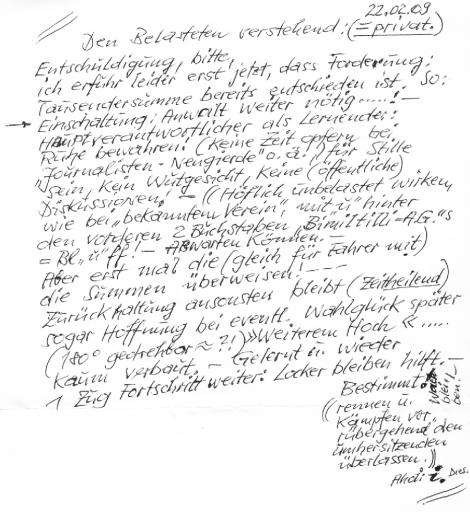 22.02.09
Den Belasteten verstehend: (= privat.)
Entschuldigung, bitte,
ich erfuhr leider erst jetzt, dass Forderung:
Tausendersumme bereits entschieden ist. So:
→ Einschaltung: Anwalt weiter nötig.....! —
Hauptverantwortlicher als Lernender:
Ruhe bewahren! (Keine Zeit opfern bei
"Journalisten-Neugierde" o.ä.!) für Stille
sein, kein Wutgesicht, keine (öffentliche)
Diskussionen! — ((Höflich unbelastet wirken,
wie bei "bekanntem Verein", mit "u" hinter
den vorderen 2 Buchstaben "Bimiltilli=A.G."s
= Bl "u" ff! — Abwarten können. —
Aber erst mal die (gleich für Fahrer mit)
die Summen überweisen! ———
Zurückhaltung ansonsten bleibt (zeitheilend)
sogar Hoffnung bei eventl. Wahlglück später
(180° gedrehtbar ≈ ?!) »Weiterem Hoch« .....
kaum verbaut. — Gelernt u. wieder
1 Zug Fortschritt weiter: Locker bleiben hilft. —
Bestimmt
((rennen u.
kämpfen vor-
rübergehend den
umhersitzenden
überlassen.))
bleiben! —
Ahoi i. Dres.